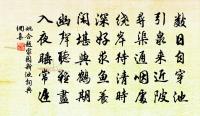 數日自穿池
引泉來近陂
尋渠通咽處
繞岸待清時
深好求魚養
閑堪與鶴期
幽聲聽難盡
入夜睡常遲
姚合題家園新池詞典
網集